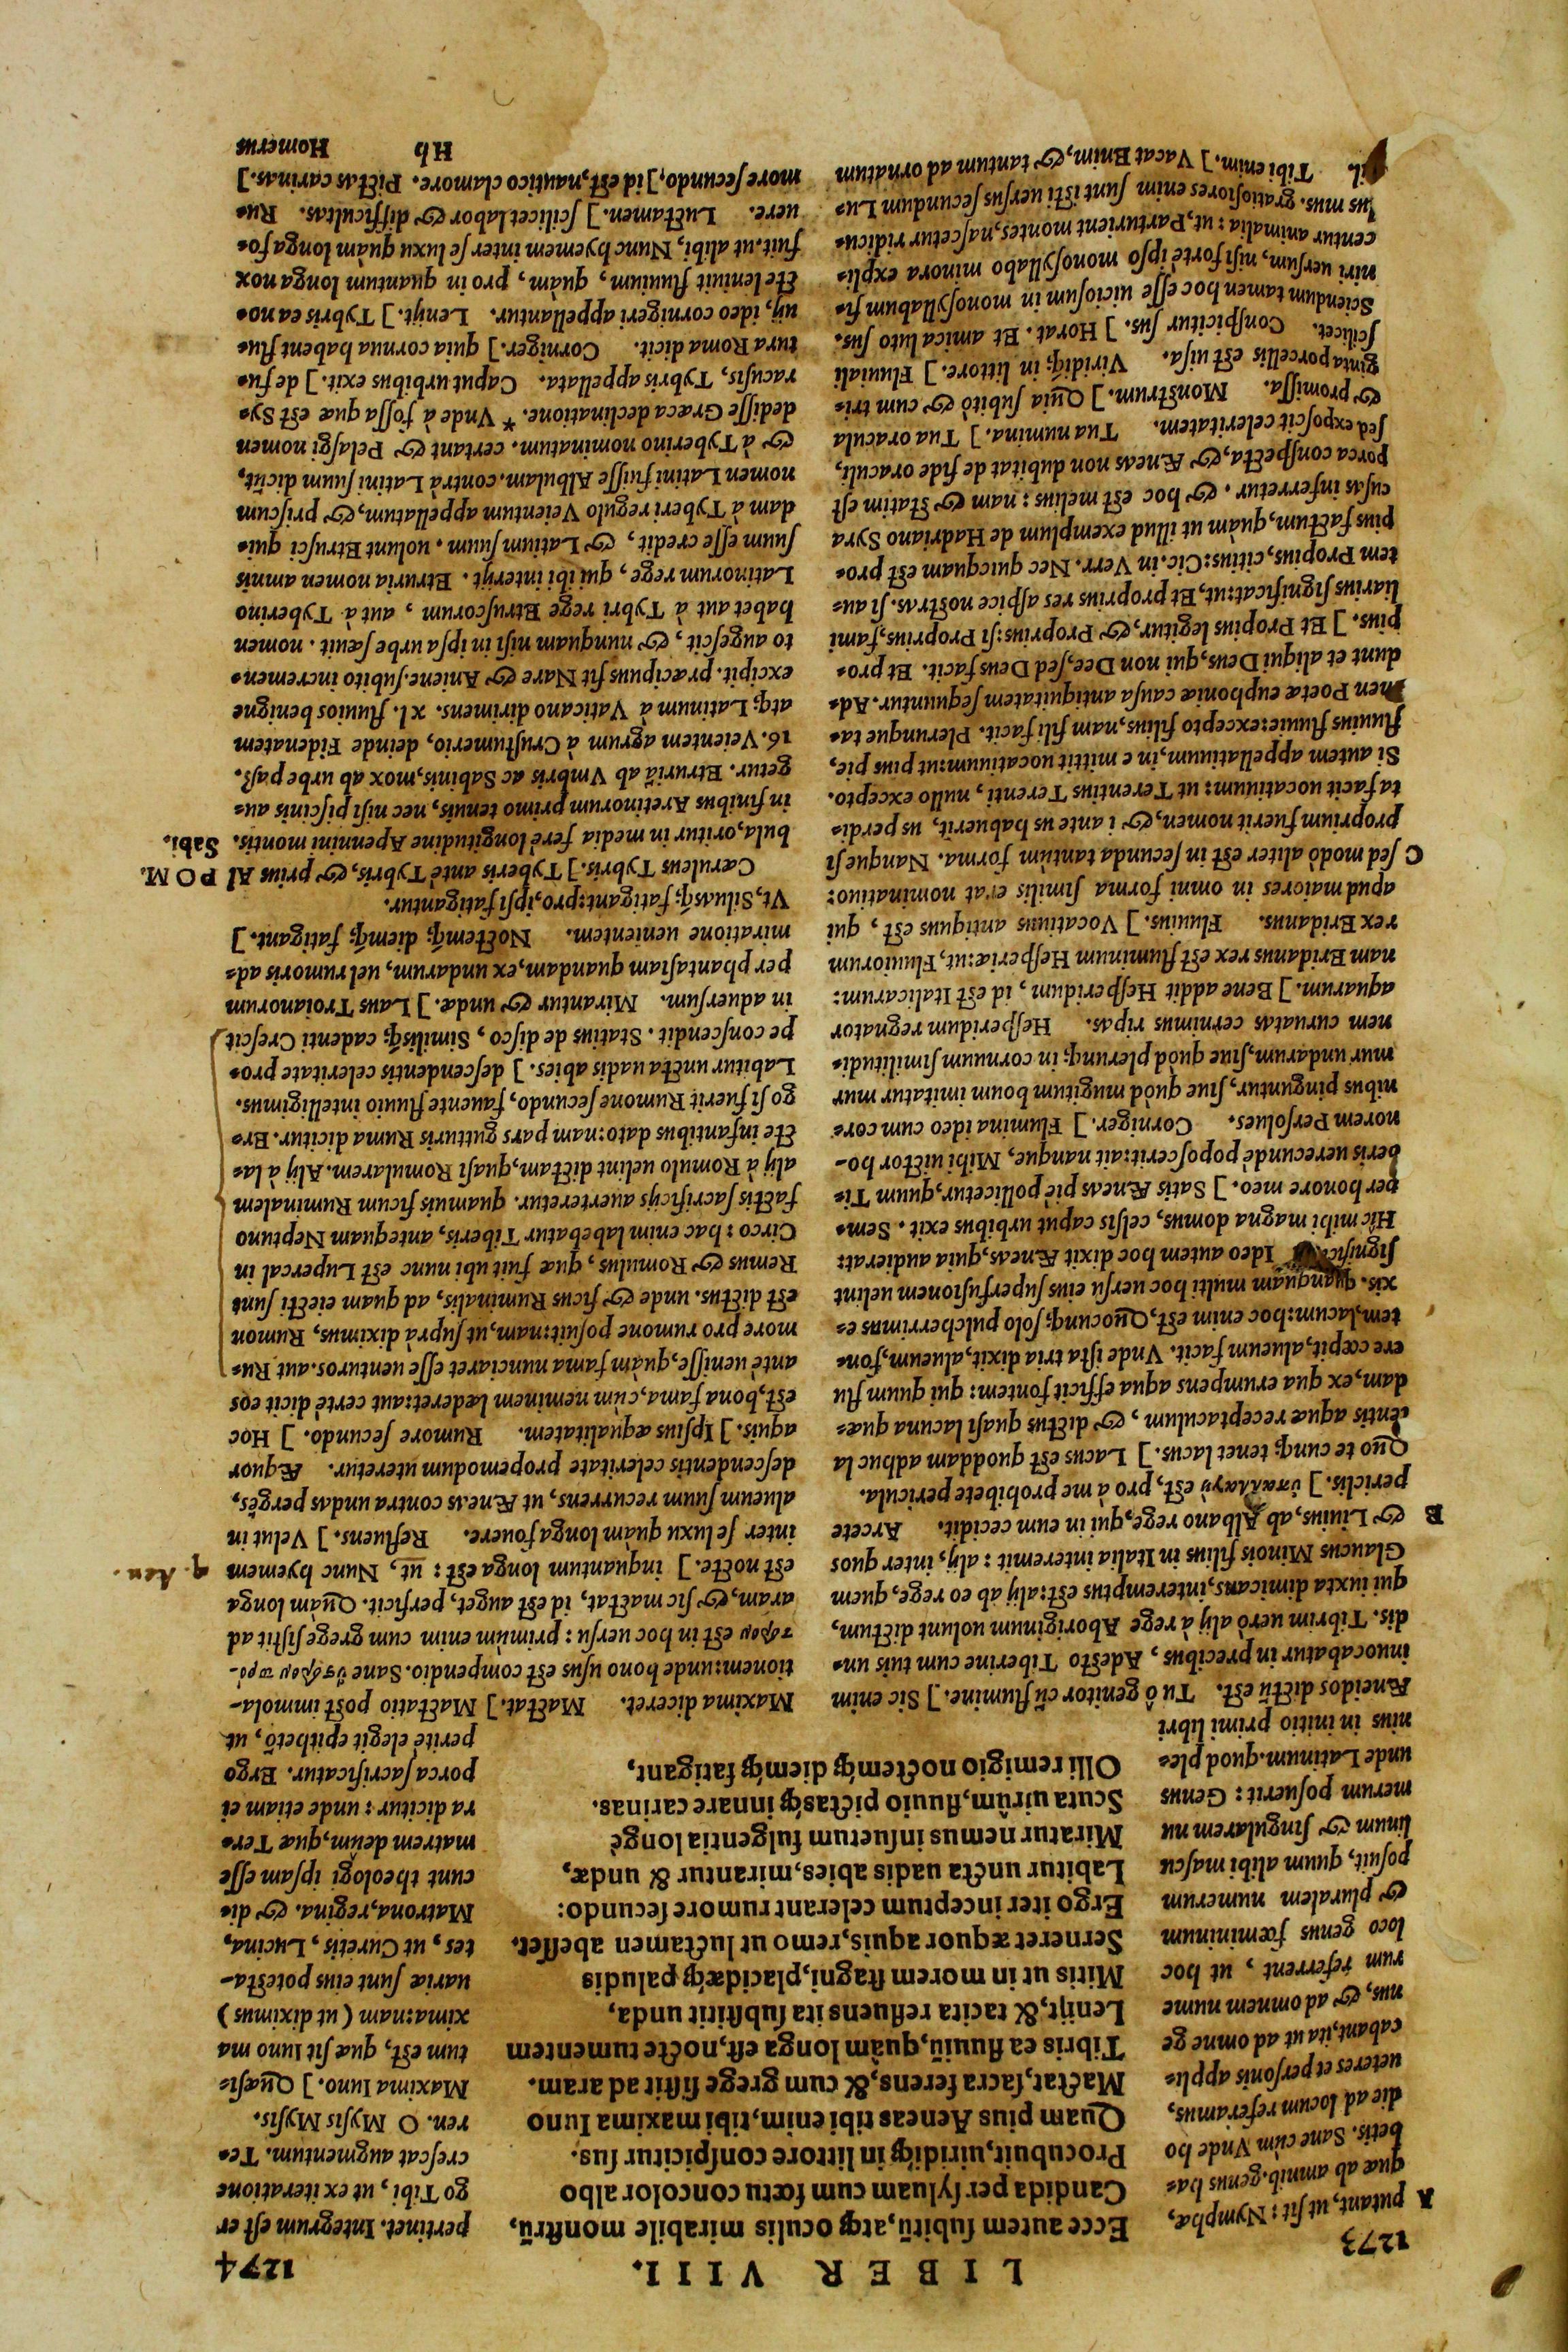 1273
LIBER VIII.
1274
A putant, ut sit: Nymphæ,
quæ ab amnib. genus ha⸗
betis. Sane cùm Vnde ho
die ad locum referamus,
ueteres et personis appli⸗
cabant, ita ut ad omne ge
nus, & ad omnem nume
rum referrent, ut hoc
loco genus fœmininum
& pluralem numerum
posuit, quum alibi mascu
linum & singularem nu
merum posuerit: Genus
unde Latinum. quod ple⸗
nius in initio primi libri
Ecce autem subitũ, atq; oculis mirabile monstrũ,
Candida per syluam cum fœtu concolor albo
Procubuit, uiridiq́; in littore conspicitur sus.
Quam pius Aeneas tibi enim, tibi maxima Iuno
Mactat, sacra ferens, & cum grege sistit ad aram.
Tibris ea fluuiũ, quàm longa est, nocte tumentem
Lenijt, & tacita refluens ita substitit unda,
Mitis ut in morem stagni, placidæq́; paludis
Sterneret æquor aquis, remo ut luctamen abesset.
Ergo iter inceptum celerant rumore secundo:
Labitur uncta uadis abies, mirantur & undæ,
Miratur nemus insuetum fulgentia longè
Scuta uirûm, fluuio pictasq́; innare carinas.
Olli remigio noctemq́; diemq́; fatigant,
pertinet. Integrum est er
go Tibi, ut ex iteratione
crescat augmentum. Te⸗
ren. O Mysis Mysis.
Maxima Iuno.] Quæsi⸗
tum est, quæ sit Iuno ma
xima: nam (ut diximus)
uariæ sunt eius potesta-
tes, ut Curetis, Lucina,
Matrona, regina. & di⸗
cunt theologi ipsam esse
matrem deûm, quæ Ter⸗
ra dicitur: unde etiam ei
porca sacrificatur. Ergo
peritè elegit epithetõ, ut
Æneidos dictũ est. Tu ô genitor cũ flumine.] Sic enim
inuocabatur in precibus, Adesto Tiberine cum tuis un⸗
dis. Tibrim uerò alij à rege Aboriginum uolunt dictum,
qui iuxta dimicans, interemptus est: alij ab eo rege, quem
Glaucus Minois filius in Italia interemit: alij, inter quos
B & Liuius, ab Albano rege, qui in eum cecidit. Arcete
periclis.] ὑπαλλαγὴ est, pro à me prohibete pericula.
Quo te cunq; tenet lacus.] Lacus est quoddam adhuc la
tentis aquæ receptaculum, & dictus quasi lacuna quæ⸗
dam, ex qua erumpens aqua efficit fontem: qui quum flu
ere cœpit, alueum facit. Vnde ista tria dixit, alueum, fon⸗
tem, lacum: hoc enim est, Quocunq; solo pulcherrimus e⸗
xis. quanquàm multi hoc uersu eius superfusionem uelint
Ideo autem hoc dixit Æneas, quia audierat:
Hic mihi magna domus, celsis caput urbibus exit. Sem⸗
per honore meo.] Satis Æneas piè pollicetur, quum Ti⸗
beris uerecundè poposcerit: ait nanque, Mihi uictor ho-
norem Persolues. Corniger.] Flumina ideo cum cor⸗
nibus pinguntur, siue quòd mugitum boum imitatur mur
mur undarum, siue quòd plerunq; in cornuum similitudi⸗
nem curuatas cernimus ripas. Hesperidum regnator
aquarum.] Bene addit Hesperidum, id est Italicarum:
nam Eridanus rex est fluminum Hesperiæ: ut, Fluuiorum
rex Eridanus. Fluuius.] Vocatiuus antiquus est, qui
apud maiores in omni forma similis erat nominatiuo:
C sed modò aliter est in secunda tantùm forma. Nanque si
proprium fuerit nomen, & i ante us habuerit, us perdi⸗
ta facit uocatiuum: ut Terentius Terenti, nullo excepto.
Si autem appellatiuum, in e mittit uocatiuum: ut pius pie,
fluuius fluuie: excepto filius, nam fili facit. Plerunque ta⸗
men Poetæ euphoniæ causa antiquitatem sequuntur. Ad⸗
dunt et aliqui Deus, qui non Dee, sed Deus facit. Et pro⸗
pius.] Et Propius legitur, & Proprius: si Proprius, fami
liarius significat: ut, Et proprius res aspice nostras. si au⸗
tem Propius, citius: Cic. in Verr. Nec quicquam est pro⸗
pius factum, quàm ut illud exemplum de Hadriano Syra
cusas inferretur. & hoc est melius: nam & statim est
porca conspecta, & Æneas non dubitat de fide oraculi,
sed exposcit celeritatem. Tua numina.] Tua oracula
& promissa. Monstrum.] Quia subitò & cum tri⸗
ginta porcellis est uisa. Viridiq́; in littore.] Fluuiali
scilicet. Conspicitur sus.] Horat. Et amica luto sus.
Sciendum tamen hoc esse uiciosum in monosyllabum fi⸗
niri uersum, nisi fortè ipso monosyllabo minora expli⸗
centur animalia: ut, Parturient montes, nascetur ridicu⸗
lus mus. gratiosiores enim sunt isti uersus secundum Lu⸗
cil. Tibi enim.] Vacat Enim, & tantum ad ornatum
Maxima diceret. Mactat.] Mactatio post immola-
tionem: unde bono usus est compendio. Sane ὕστερον πρό-
τερον est in hoc uersu: primùm enim cum grege sistit ad
aram, & sic mactat, id est auget, perficit. Quàm longa
est nocte.] inquantum longa est: ut, Nunc hyemem
inter se luxu quàm longa fouere. Refluens.] Velut in
alueum suum recurrens, ut Æneas contra undas pergẽs,
descendentis celeritate propemodum uteretur. Æquor
aquis.] Ipsius æqualitatem. Rumore secundo.] Hoc
est, bona fama, cùm neminem læderet: aut certè dicit eos
antè uenisse, quàm fama nunciaret esse uenturos. aut Ru⸗
more pro rumone posuit: nam, ut suprà diximus, Rumon
est dictus. unde & ficus Ruminalis, ad quam eiecti sunt
Remus & Romulus, quæ fuit ubi nunc est Lupercal in
Circo: hac enim labebatur Tiberis, antequam Neptuno
factis sacrificijs auerteretur. quamuis ficum Ruminalem
alij à Romulo uelint dictam, quasi Romularem. Alij à la⸗
cte infantibus dato: nam pars gutturis Ruma dicitur. Er⸗
go si fuerit Rumone secundo, fauente fluuio intelligimus.
Labitur uncta uadis abies.] descendentis celeritate pro⸗
pe conscendit. Statius de disco, Similisq́; cadenti Crescit
in aduersum. Mirantur & undæ.] Laus Troianorum
per phantasiam quandam, ex undarum, uel rumoris ad⸗
miratione uenientem. Noctemq́; diemq́; fatigant.]
Vt, Siluasq́; fatigant: pro, ipsi fatigantur.
Cæruleus Tybris.] Tyberis antè Tybris, & prius Al POM.
bula, oritur in media ferè longitudine Apennini montis. Sabi.
in finibus Aretinorum primo tenuis, nec nisi piscinis au⸗
getur. Etruriã ab Vmbris ac Sabinis, mox ab urbe paß.
16. Veientem agrum à Crustumerio, deinde Fidenatem
atq; Latinum à Vaticano dirimens. xl. fluuios benigne
excipit. præcipuus fit Nare & Aniene. subito incremen⸗
to augescit, & nunquam nisi in ipsa urbe sæuit. nomen
habet aut à Tybri rege Etruscorum, aut à Tyberino
Latinorum rege, qui ibi interijt. Etruria nomen amnis
suum esse credit, & Latium suum. uolunt Etrusci qui⸗
dam à Tyberi regulo Veientum appellatum, & priscum
nomen Latini fuisse Albulam. contrà Latini suum dicũt,
& à Tyberino nominatum. certant & Pelasgi nomen
dedisse Græca declinatione. * Vnde à fossa quæ est Sy⸗
racusis, Tybris appellata. Caput urbibus exit.] de fu⸗
tura Roma dicit. Corniger.] quia cornua habent flu⸗
uij, ideo cornigeri appellantur. Lenijt.] Tybris ea no⸗
cte leniuit fluuium, quàm, pro in quantum longa nox
fuit. ut alibi, Nunc hyemem inter se luxu quàm longa fo⸗
uere. Luctamen.] scilicet labor & difficultas. Ru⸗
more secundo,] id est, nautico clamore. Pictas carinas.]
Hh Homerus